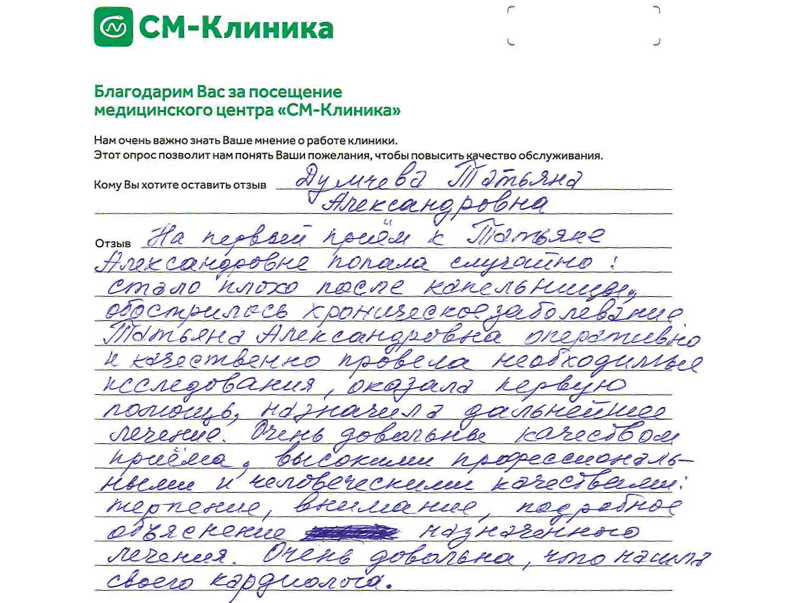 СМ-Клиника
Благодарим Вас за посещение
медицинского центра «СМ-Клиника»
Нам очень важно знать Ваше мнение о работе клиники.
Этот опрос позволит нам понять Ваши пожелания, чтобы повысить качество обслуживания.
Кому Вы хотите оставить отзыв Думчева Татьяна
Александровна
Отзыв На первый приём к Татьяне
Александровне попала случайно:
стало плохо после капельницы,
обострилось хроническое заболевание
Татьяна Александровна оперативно
и качественно провела необходимые
исследования, оказала первую
помощь, назначила дальнейшее
лечение. Очень довольна качеством
приёма, высокими профессиональ-
ными и человеческими качествами:
терпение, внимание, подробное
объяснение назначенного
лечения. Очень довольна, что нашла
своего кардиолога.